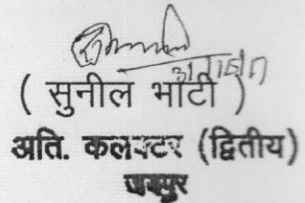 ( सुनील भाटी )
अति. कलक्टर (द्वितीय)
जयपुर